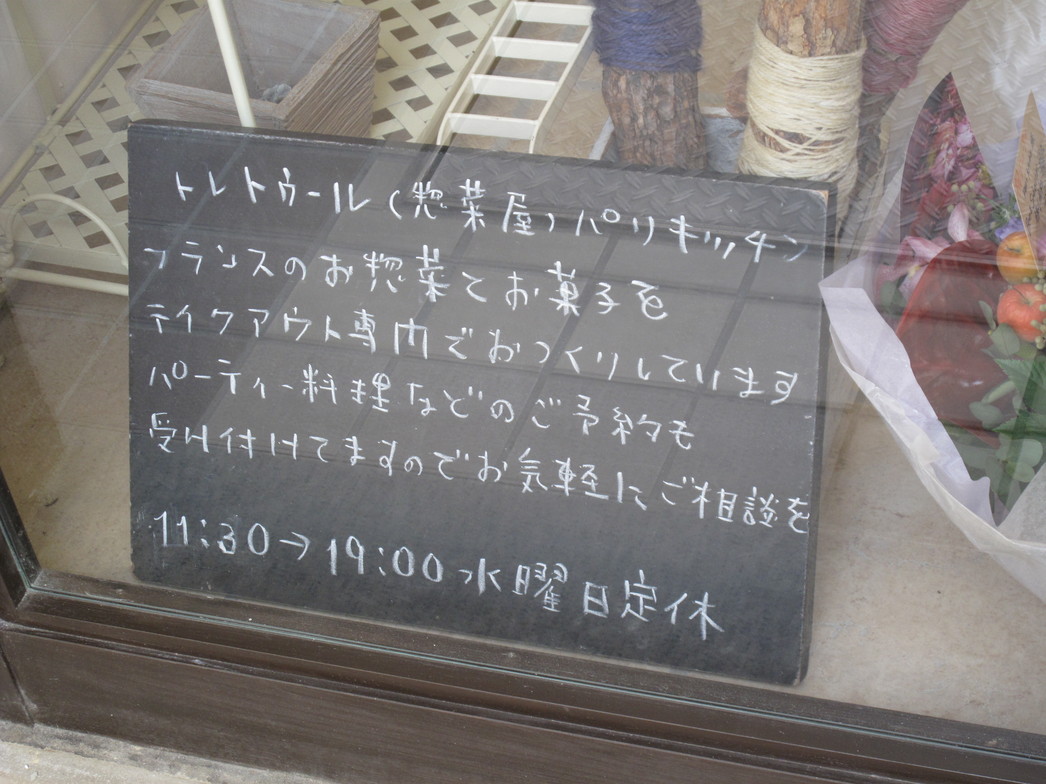 トレトゥール(惣菜屋)パリキッチン
フランスのお惣菜とお菓子を
テイクアウト専門でおつくりしています
パーティー料理などのご予約も
受け付けてますのでお気軽にご相談を
11:30→19:00 水曜日定休